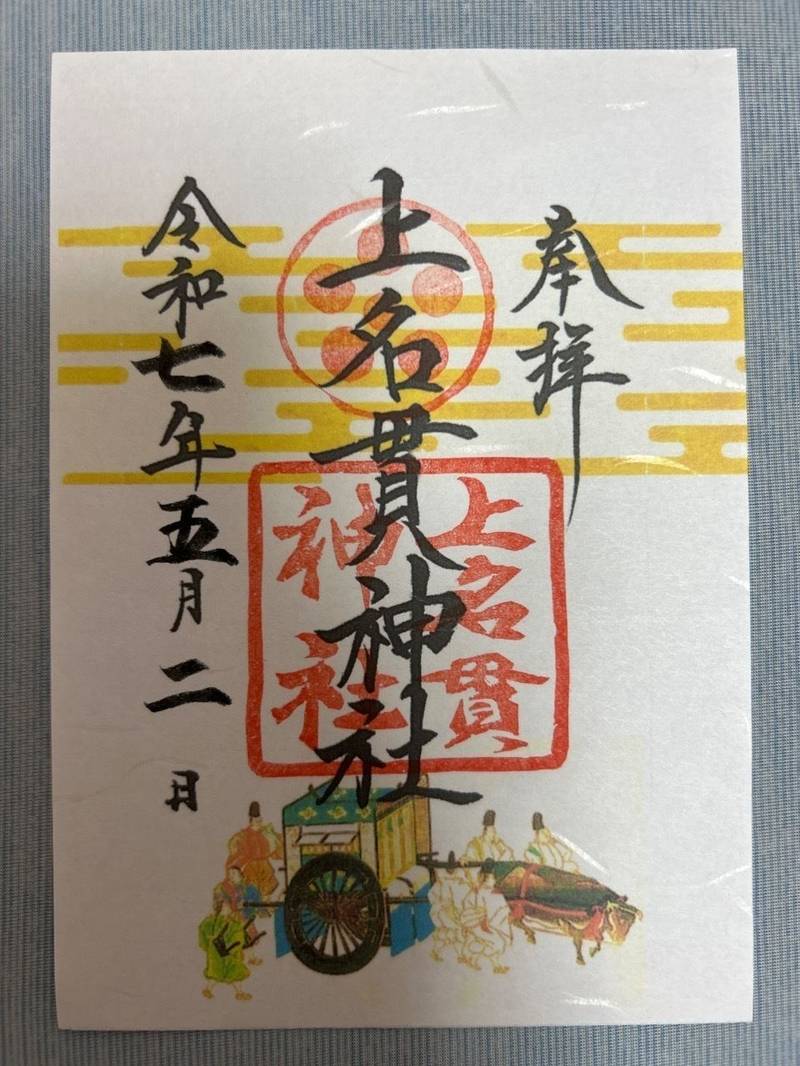 奉拝
上名貫神社
上名貫
神社
令和七年五月二日